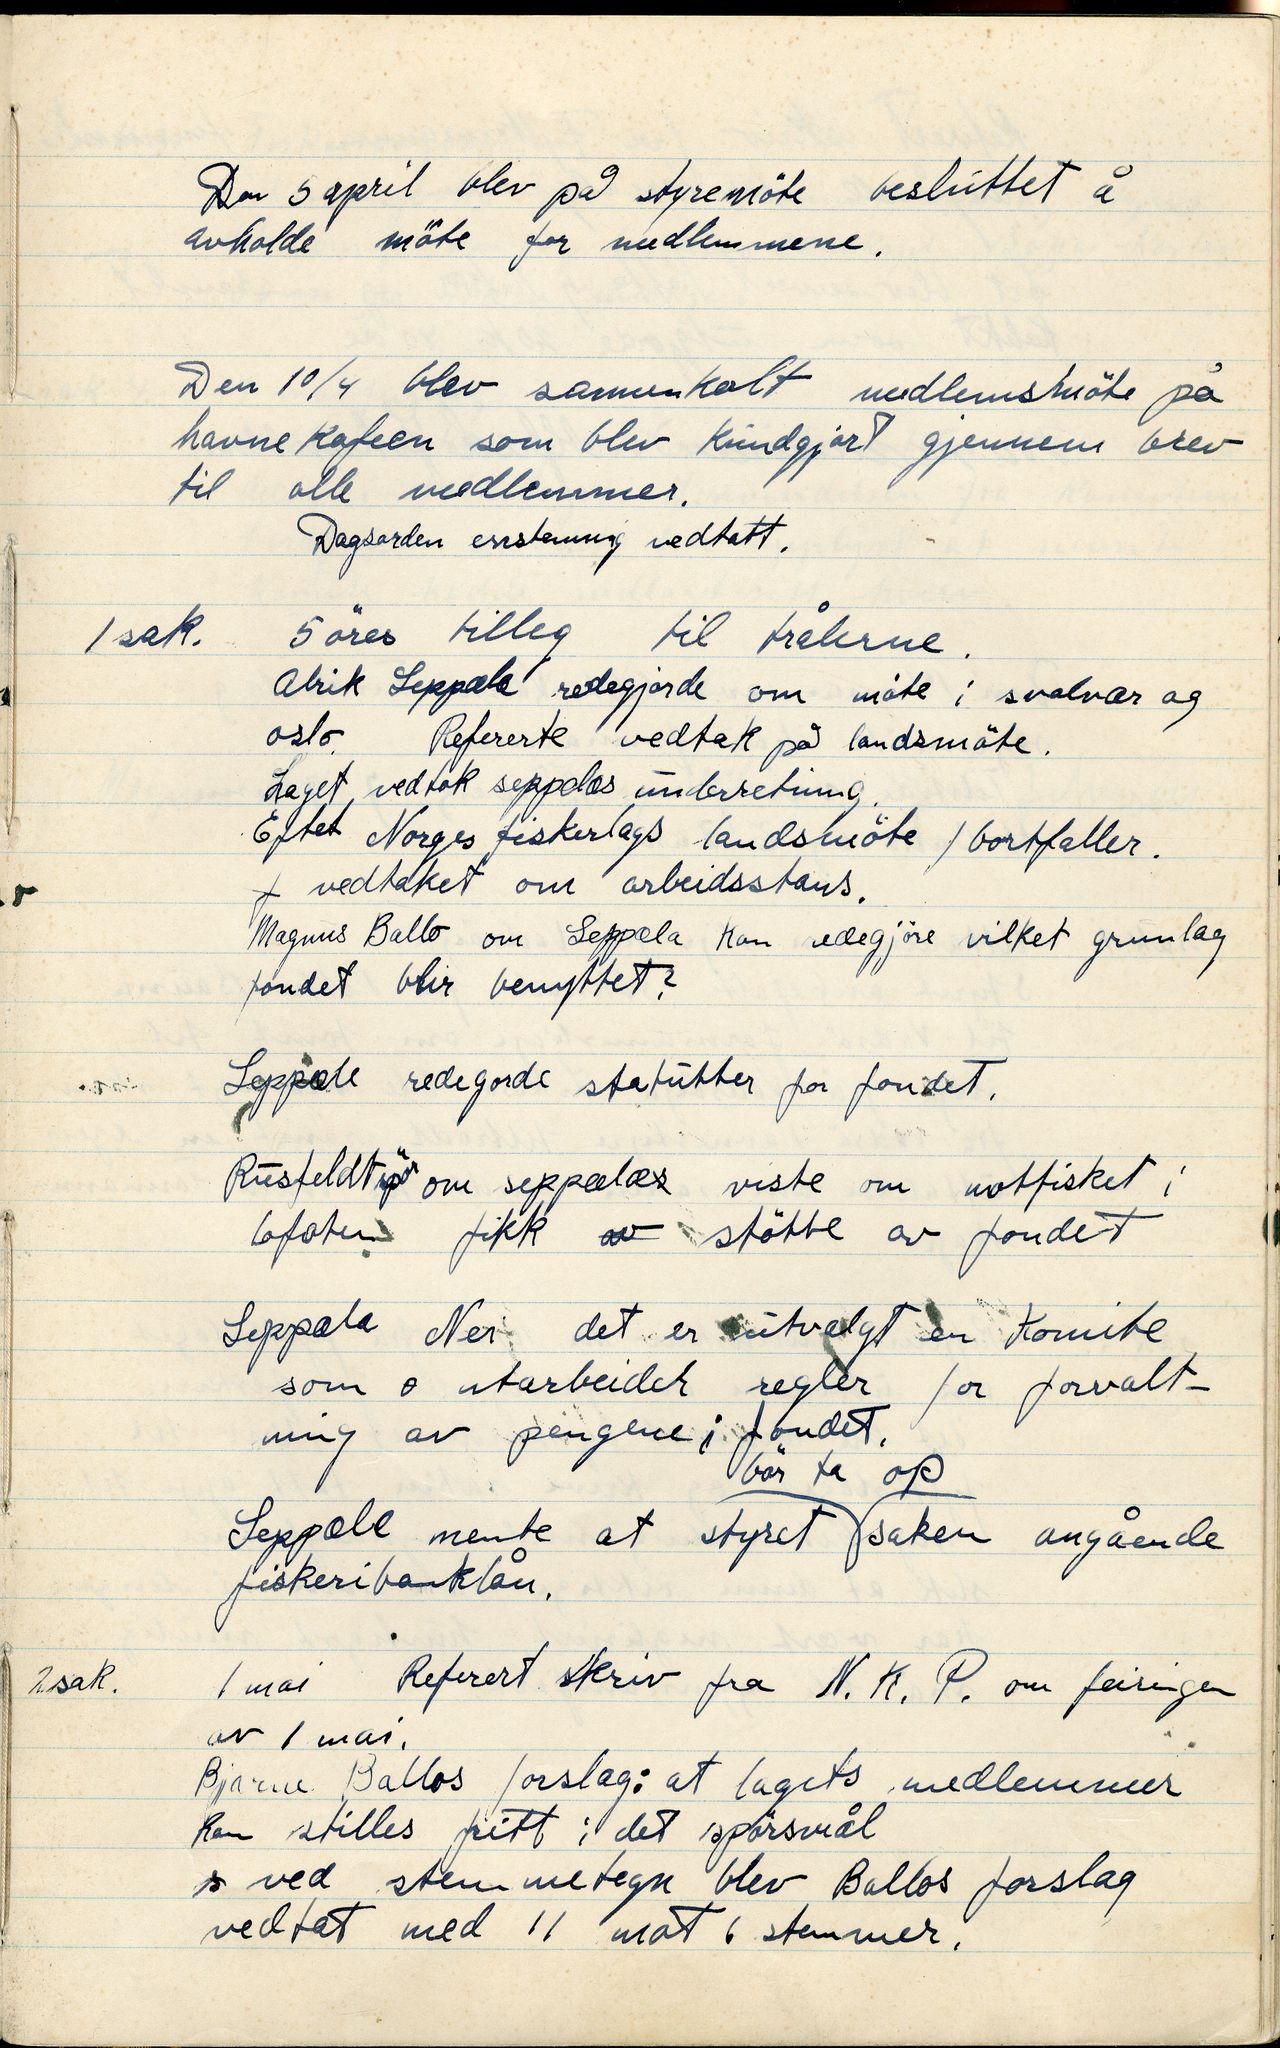 Den 5 april blev på styremöte besluttet å
avholde möte for medlemmene.
Den 10/4 blev sammenkalt medlemsmöte på
havnekafeen som blev kundgjort gjennem brev
til alle medlemmer.
Dagsorden enstemmig vedtatt.
1 sak. 5 öres tilleg til trålerne.
Alrik Seppala redegjorde om möte i svolvær og
oslo. Refererte vedtak på landsmöte.
Laget vedtok seppalas underretning.
Eftet Norges fiskerlags landsmöte bortfaller.
vedtaket om arbeidsstans.
Magnus Ballo om Seppala kan redegjöre vilket grunlag
fondet blir benyttet?
Seppala redegorde statutter for fondet.
Rusfeldt spör om seppalas viste om notfisket i
lofoten fikk av stötte av fondet
Seppala Nei det er utvalgt en Komite
som o utarbeider regler for forvalt-
ning av pengene i fondet.
bör ta op
Seppala mente at styret saken angående
fiskeribanklån.
2 sak. 1 mai Referert skriv fra N. K. P. om feiringen
av 1 mai.
Bjarne Ballos forslag: at lagets medlemmer
kan stilles fritt i det spörsmål
ved stemmetegn blev Ballos forslag
vedtat med 11 mot 6 stemmer.